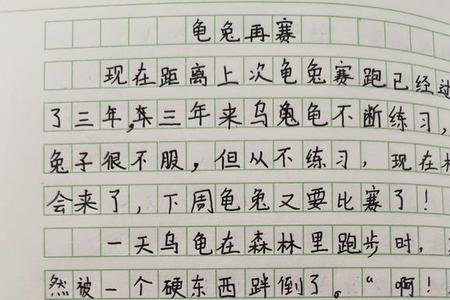 龟兔再赛
现在距离上次龟兔赛跑已经过
了三年,三年来乌龟不断练习,
兔子很不服，但从不练习，现在
会来了，下周龟兔又要比赛了！
一天乌龟在森林里跑步时，
然被一个硬东西跘倒了。“啊！